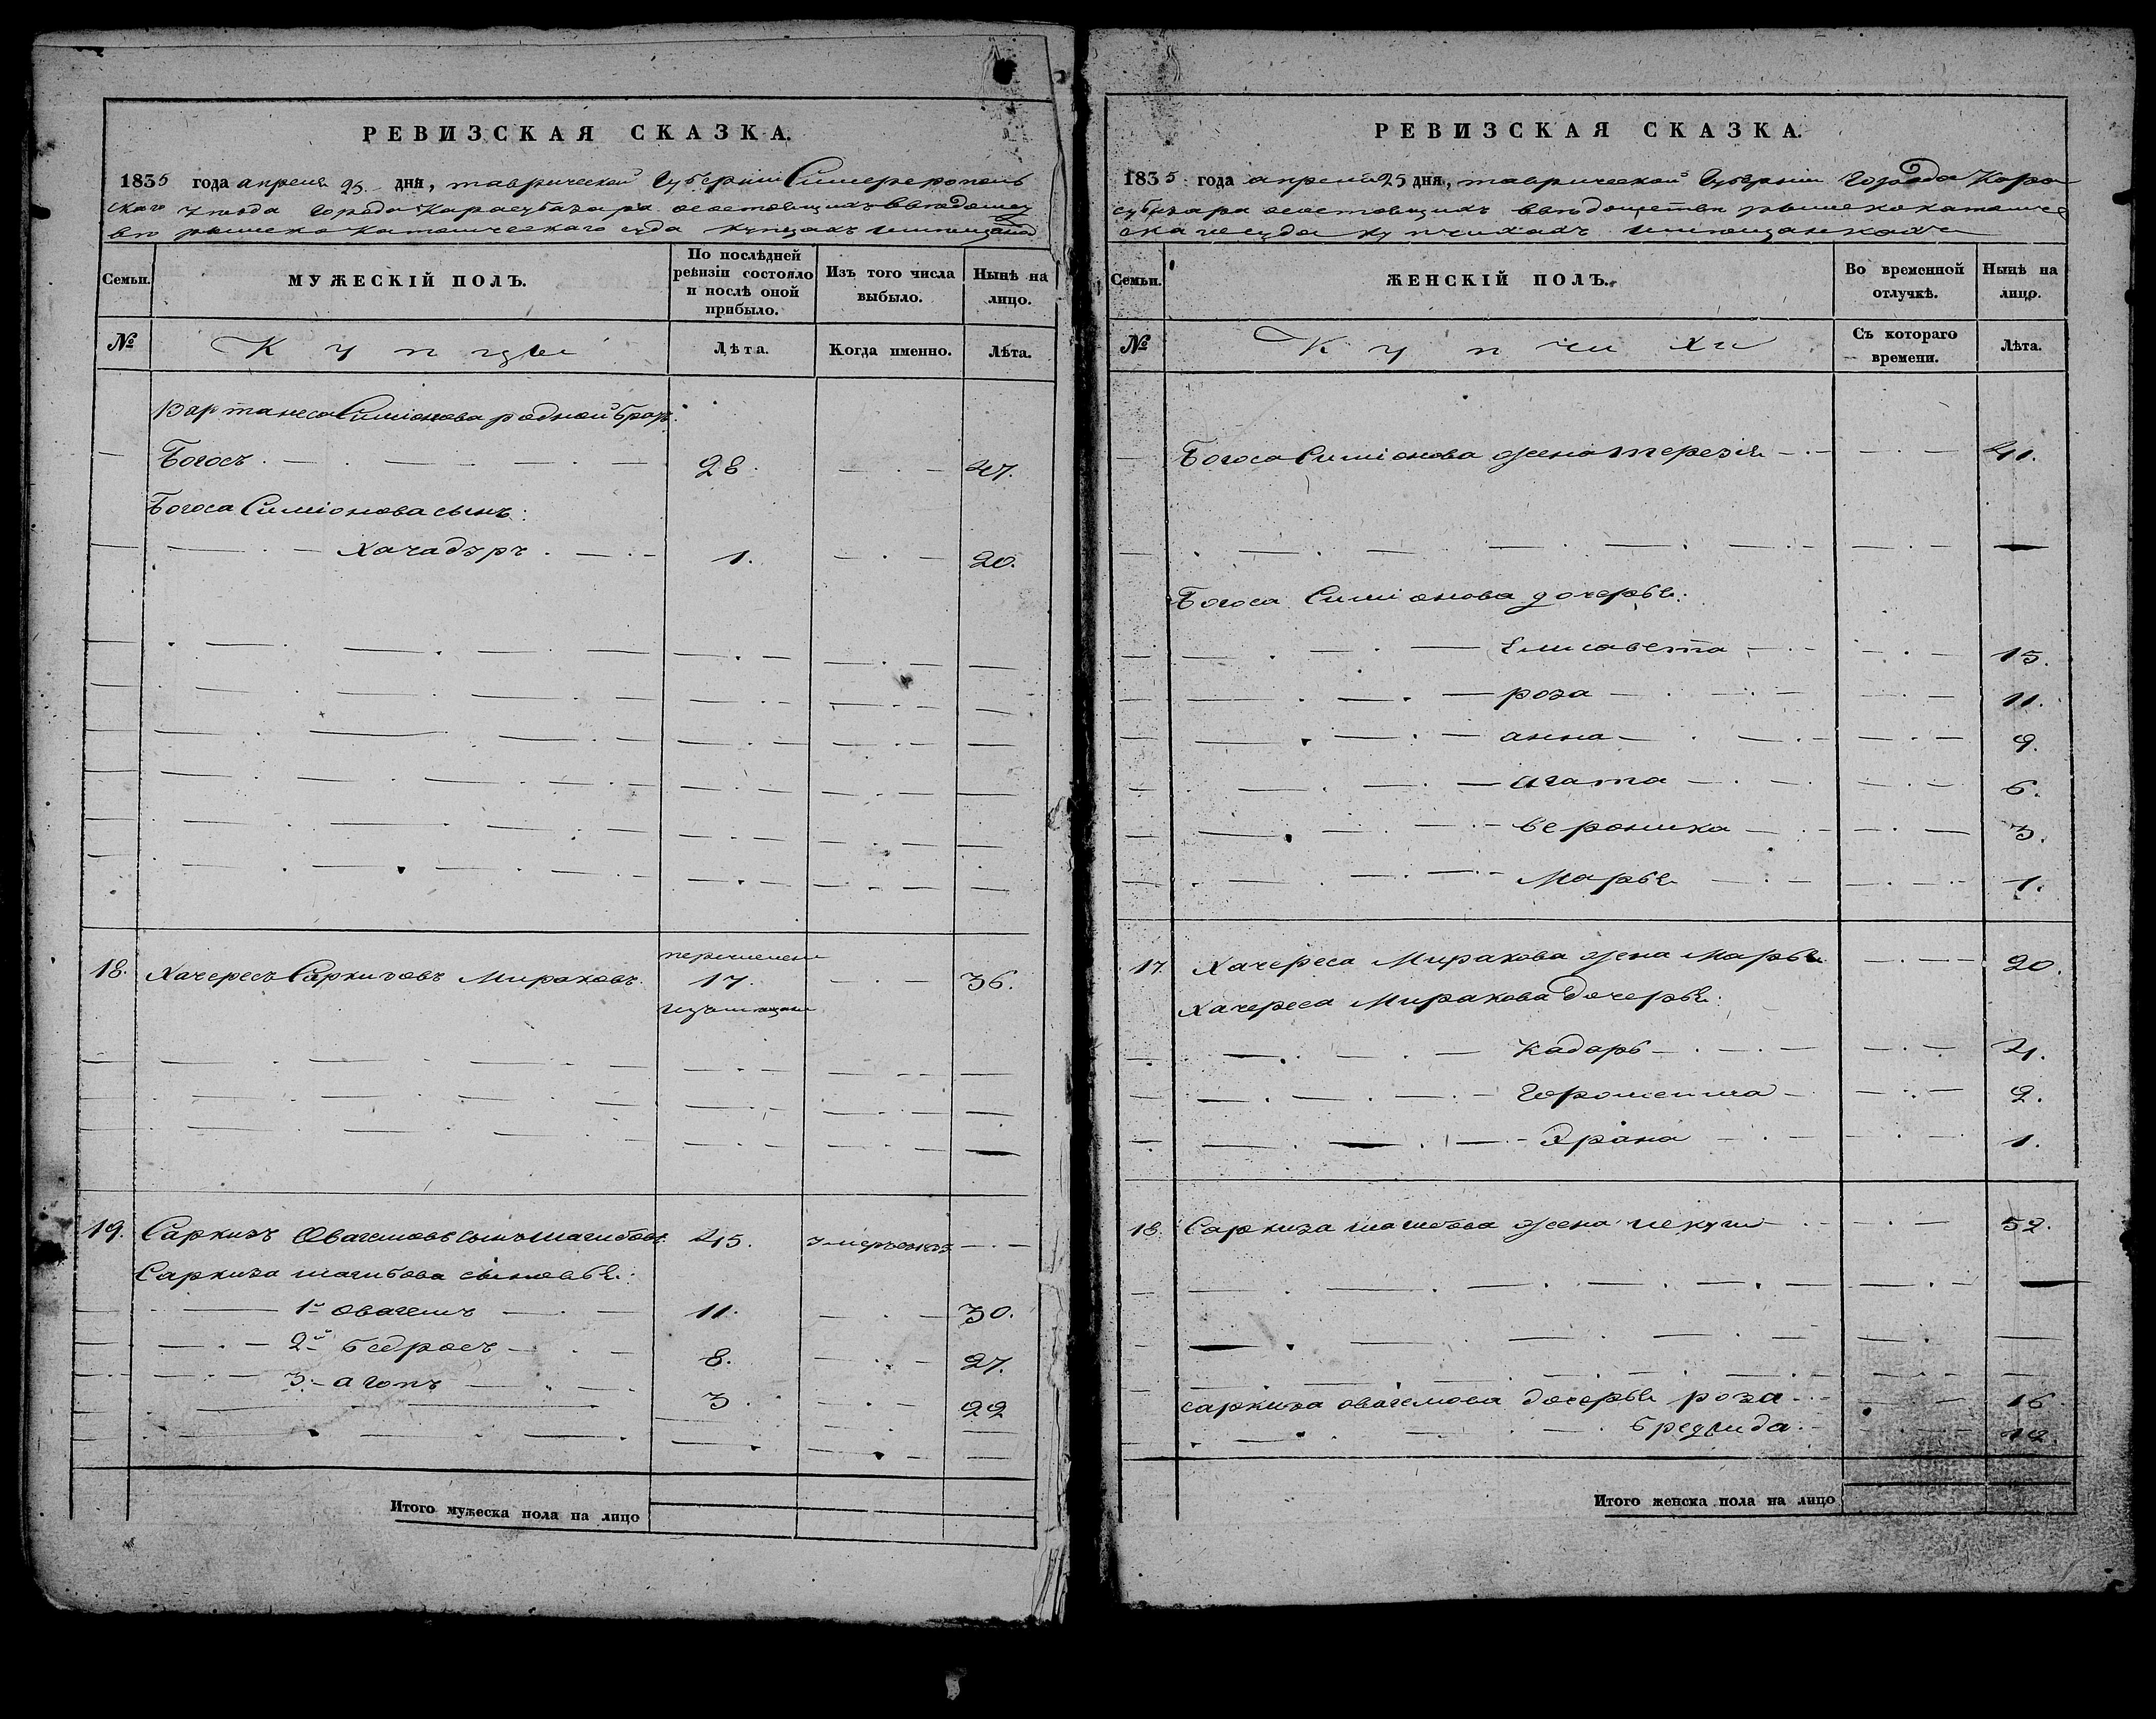 РЕВИЗСКАЯ СКАЗКА.
1835 года апреля 25 дня, таврической Губерніи Симферополь
скаго уезда города Карасубазара о состоящихъ в ведомст
ве римско католическаго суда купцахъ имещанах
Семьи.
МУЖЕСКІЙ ПОЛЪ.
По послѣдней ревизіи состояло и послѣ оной прибыло.
Изъ того числа выбыло.
Нынѣ на лицо.
№
Купцы
Лѣта.
Когда именно.
Лѣта.
Вартанеса Симіонова родной братъ
Богосъ 28. 47.
Богоса Симіонова сынъ:
Хачадуръ 1. 20.
перечислен
18. Хачересъ Саркизовъ Мираковъ 17. 36.
изъ мещан
19. Саркизъ Овагемовъ сынъ шагибовъ 45. умеръ
Саркиза шагибова сыновья:
1й Овагемъ 11. 30.
2й бедросъ 8. 27.
3й агопъ 3. 22
Итого мужеска пола на лицо
РЕВИЗСКАЯ СКАЗКА.
1835 года апреля 25 дня, таврической Губерніи Города Кара
субазара о состоящихъ в ведомстве римскокатоличе
скаго суда купчихахъ имещанкахъ
Семьи.
ЖЕНСКІЙ ПОЛЪ.
Во временной отлучкѣ.
Нынѣ на лицо.
№
Купчихи
Съ котораго времени.
Лѣта.
Богоса Симіонова жена терезія 41.
Богоса Симіонова дочерья:
Елисавета 15.
роза 11.
анна 9.
агата 6.
вероника 3.
Марья 1.
17. Хачереса Миракова жена Марья 20.
Хачереса Миракова дочерья:
Кадарь 4.
2.
1.
18. Саркиза шагибова жена 52.
саркиза овагемова дочерья роза 16
12.
Итого женска пола на лицо